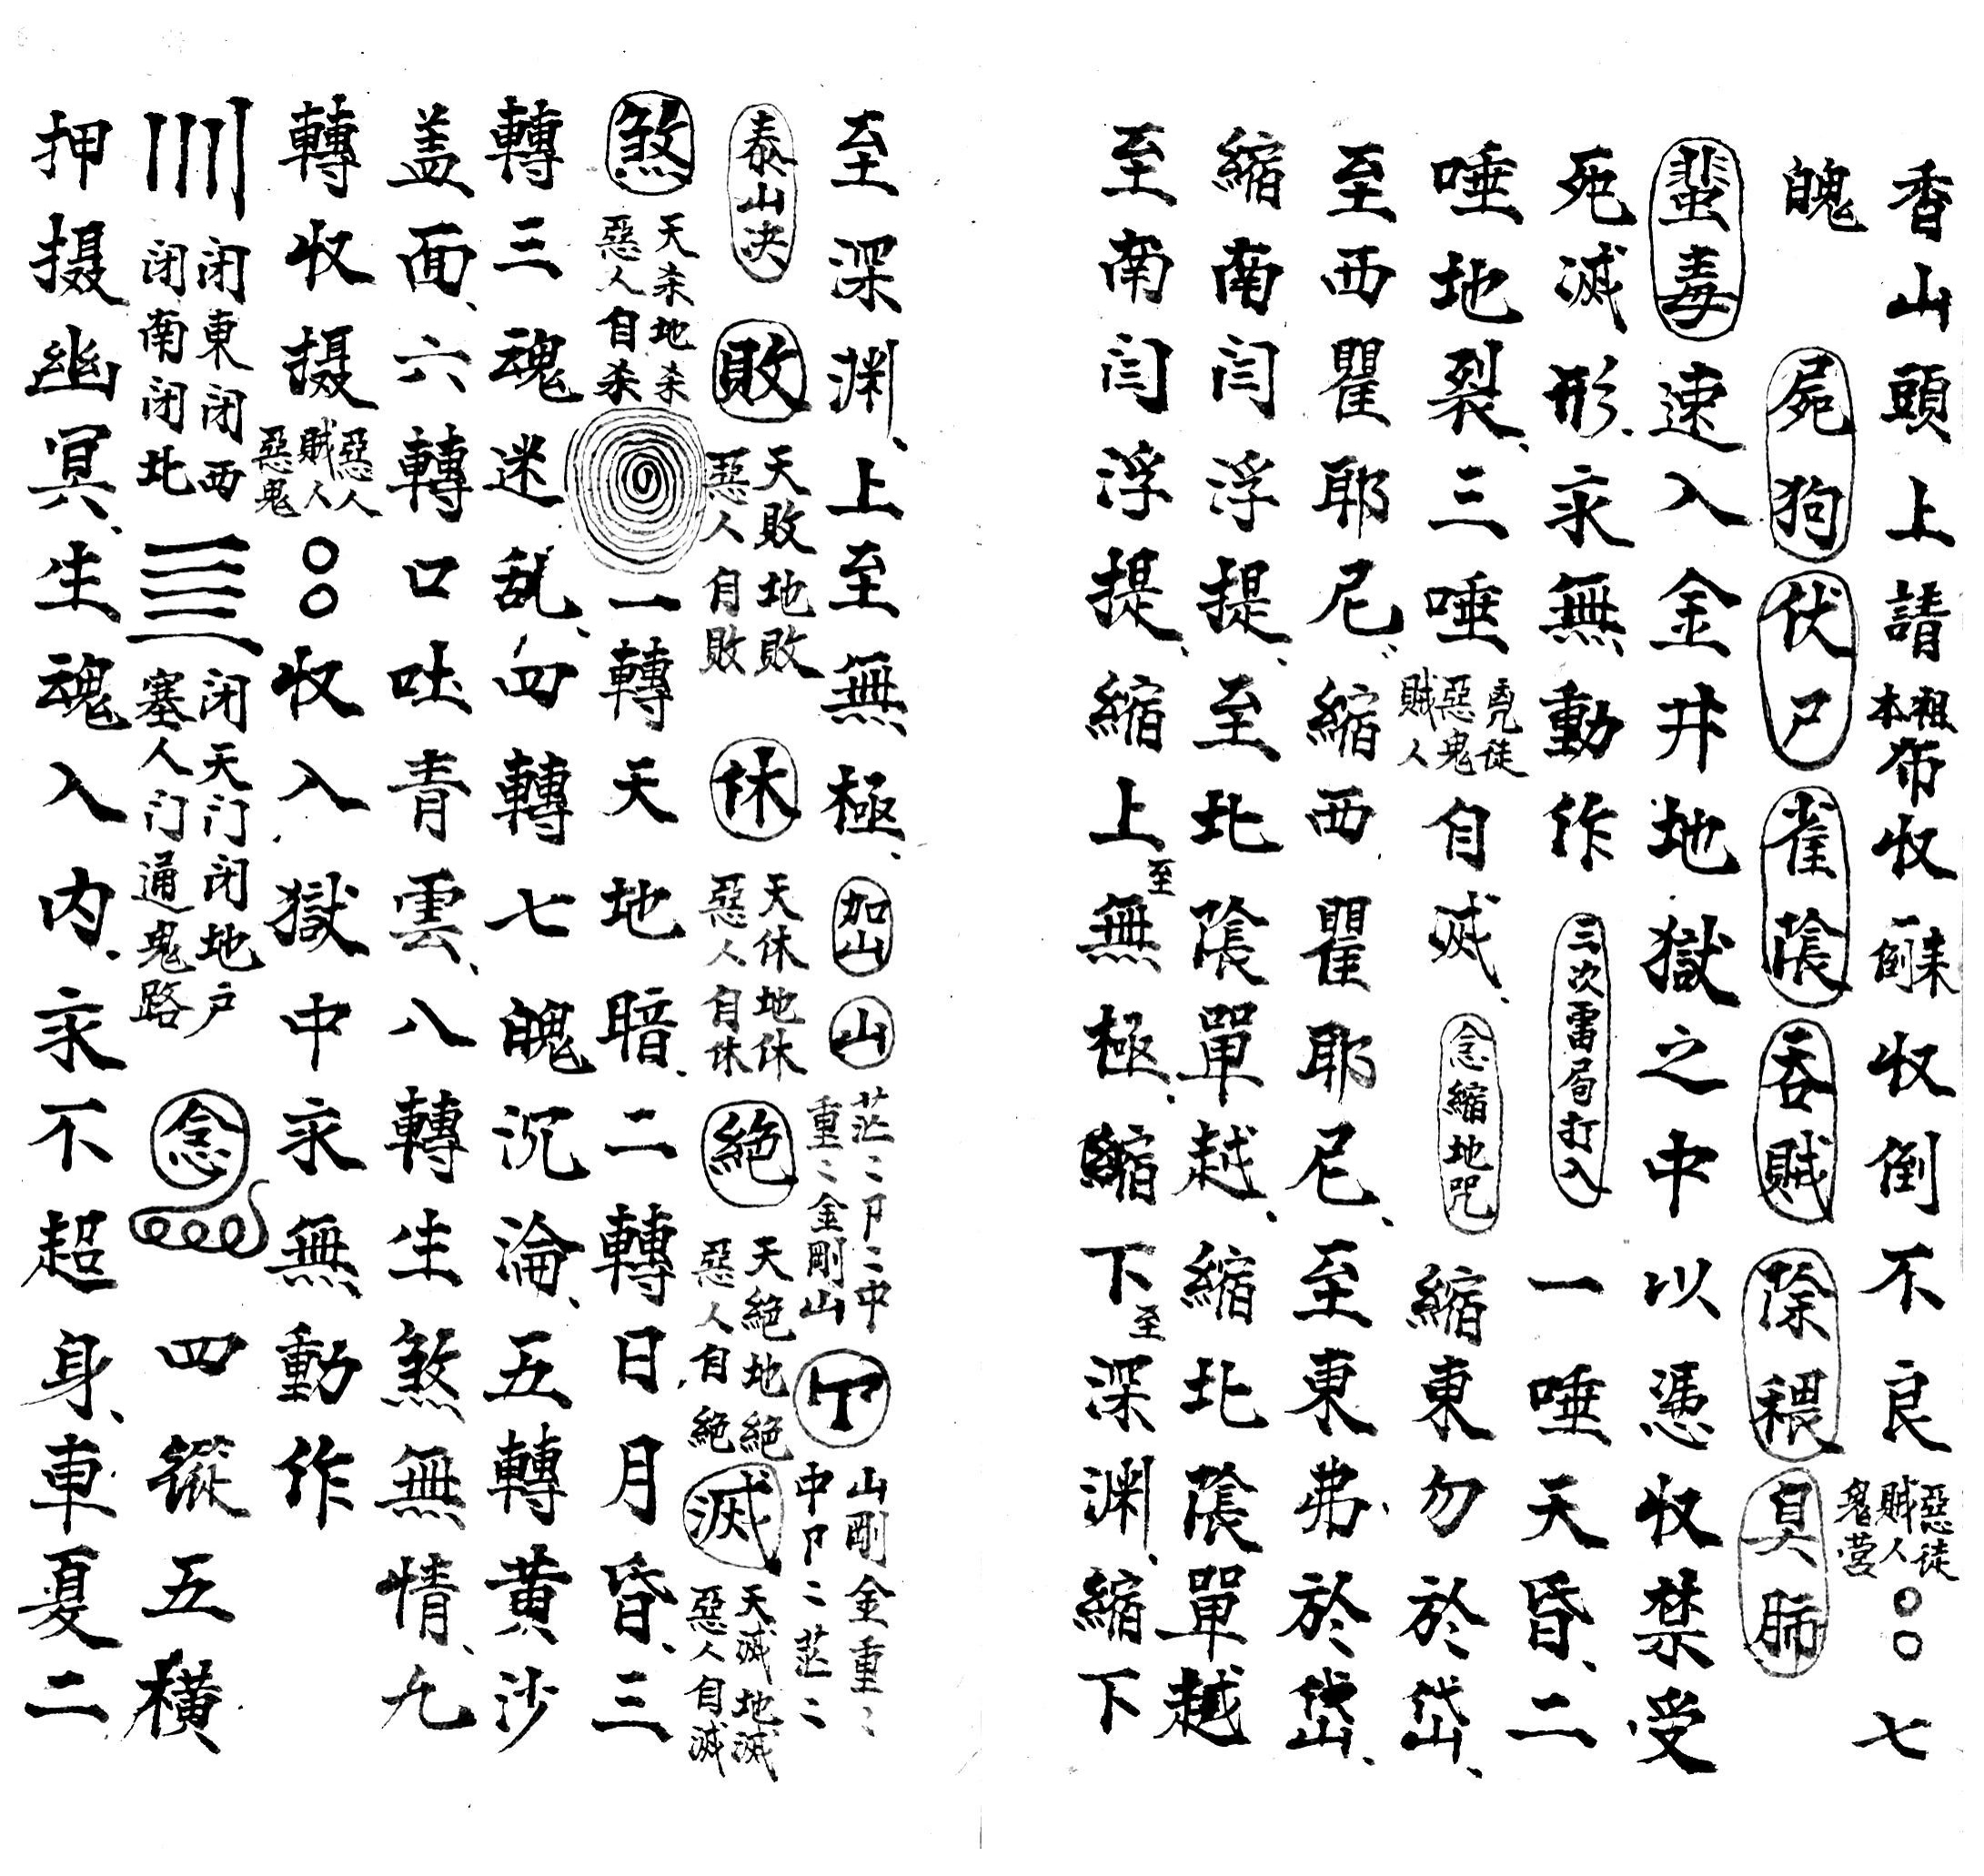 香山頭上請祖本布收一條來倒收倒不良惡徒賊人鬼营〇〇七
魄 屍狗 伏尸 雀陰 吞賊 除穢 臭肺
蜚毒速入金井地獄之中以憑收禁受
死滅形永無動作 三次雷局打入 一唾天昏、二
唾地裂、三唾兇徒惡鬼賊人自滅、 念縮地咒 縮東勿於岱、
至西瞿耶尼、縮西瞿耶尼、至東弗於岱、
縮南閆浮提、至北陰單越、縮北陰單越
至南閆浮提、縮上至無極、縮下至深渊、縮下
至深渊、上至無極、 加山 山 茫〻卩〻中重〻金剛山 山剛金重〻中卩〻茫〻
泰山决 敗 天敗地敗惡人自敗 休 天休地休惡人自休 絕 天絕地絕惡人自絕 滅 天滅地滅惡人自滅
煞 天杀地杀惡人自杀 一轉天地暗、二轉日月昏、三
轉三魂迷乱、四轉七魄沉淪、五轉黃沙
盖面、六轉口吐青雲、八轉生煞無情、九
轉收摄惡人賊人惡鬼〇〇收入獄中永無動作
闭東闭西闭南闭北 闭天门闭地户塞人门通鬼路 念 四縱五橫
押摄幽冥、生魂入内、永不超身、車夏二